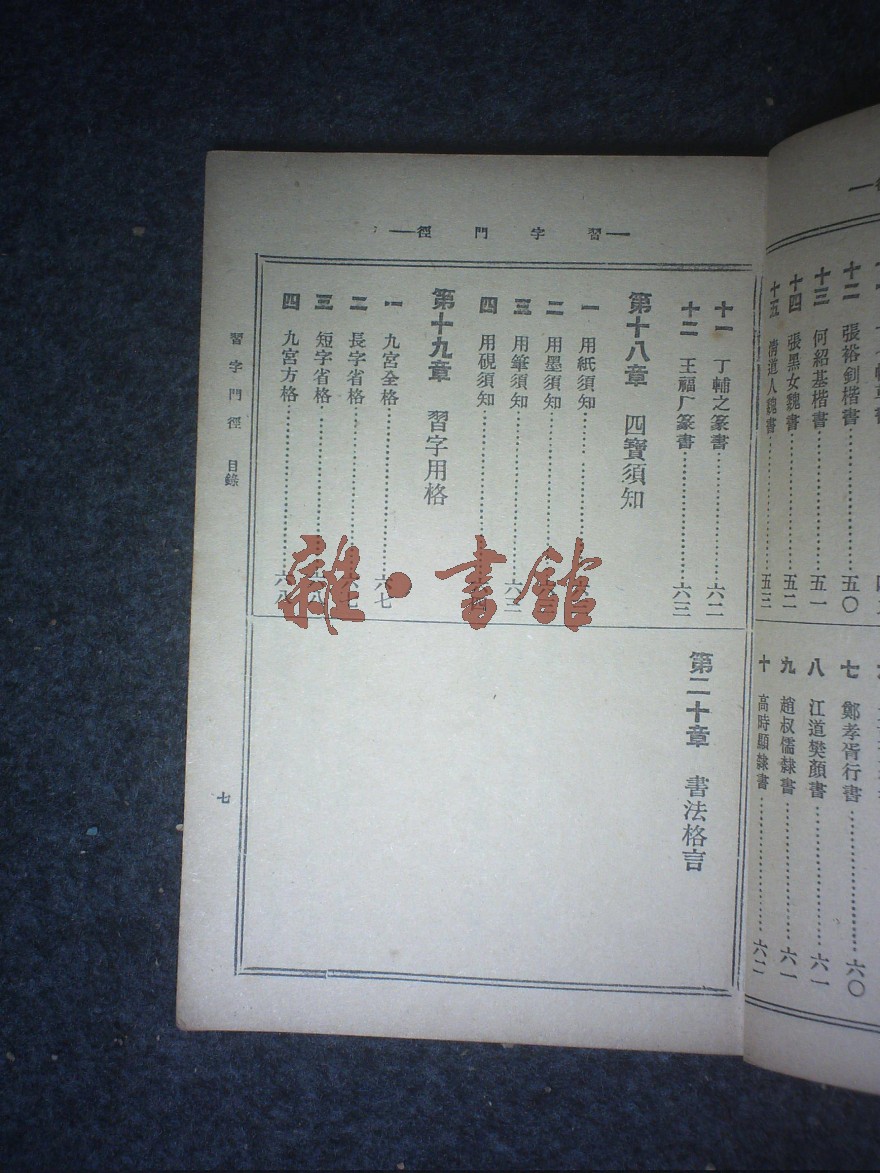 習字門徑
十一 丁輔之篆書……六二
十二 王福厂篆書……六三
第十八章 四寶須知
一 用紙須知……
二 用墨須知……
三 用筆須知……六三
四 用硯須知……
第十九章 習字用格
一 九宮全格……六七
二 長字省格……六七
三 短字省格……六八
四 九宮方格……六八
第二十章 書法格言
習字門徑 目錄
七
十二 張裕釗楷書……五〇
十三 何紹基楷書……五一
十四 張黑女魏書……五二
十五 清道人魏書……五三
七 鄭孝胥行書……六〇
八 江道樊顏書……六一
九 趙叔儒隸書……六一
十 高時顯隸書……六二
雜·書館